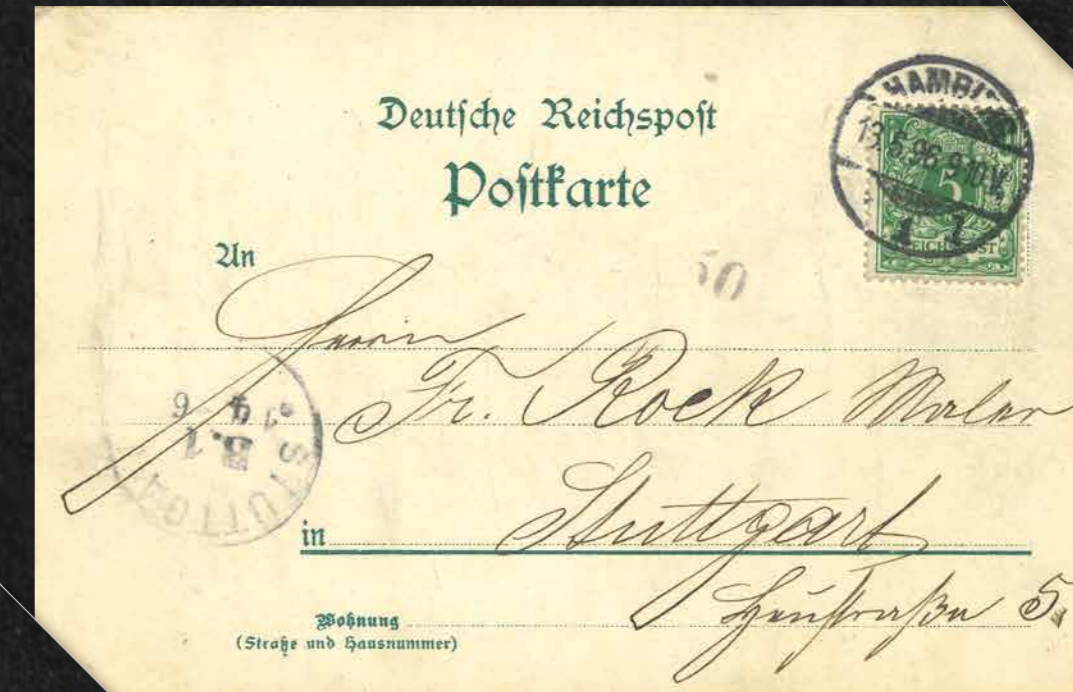 Deutsche Reichspost
Postkarte
HAMBURG
13.6.96.9-10V.
1 1
5
REICHSPOST
An
Herrn
Fr. Rock Maler
STUTTGA
B.1
in Stuttgart
Wohnung
(Straße und Hausnummer)
Heustraße 5.